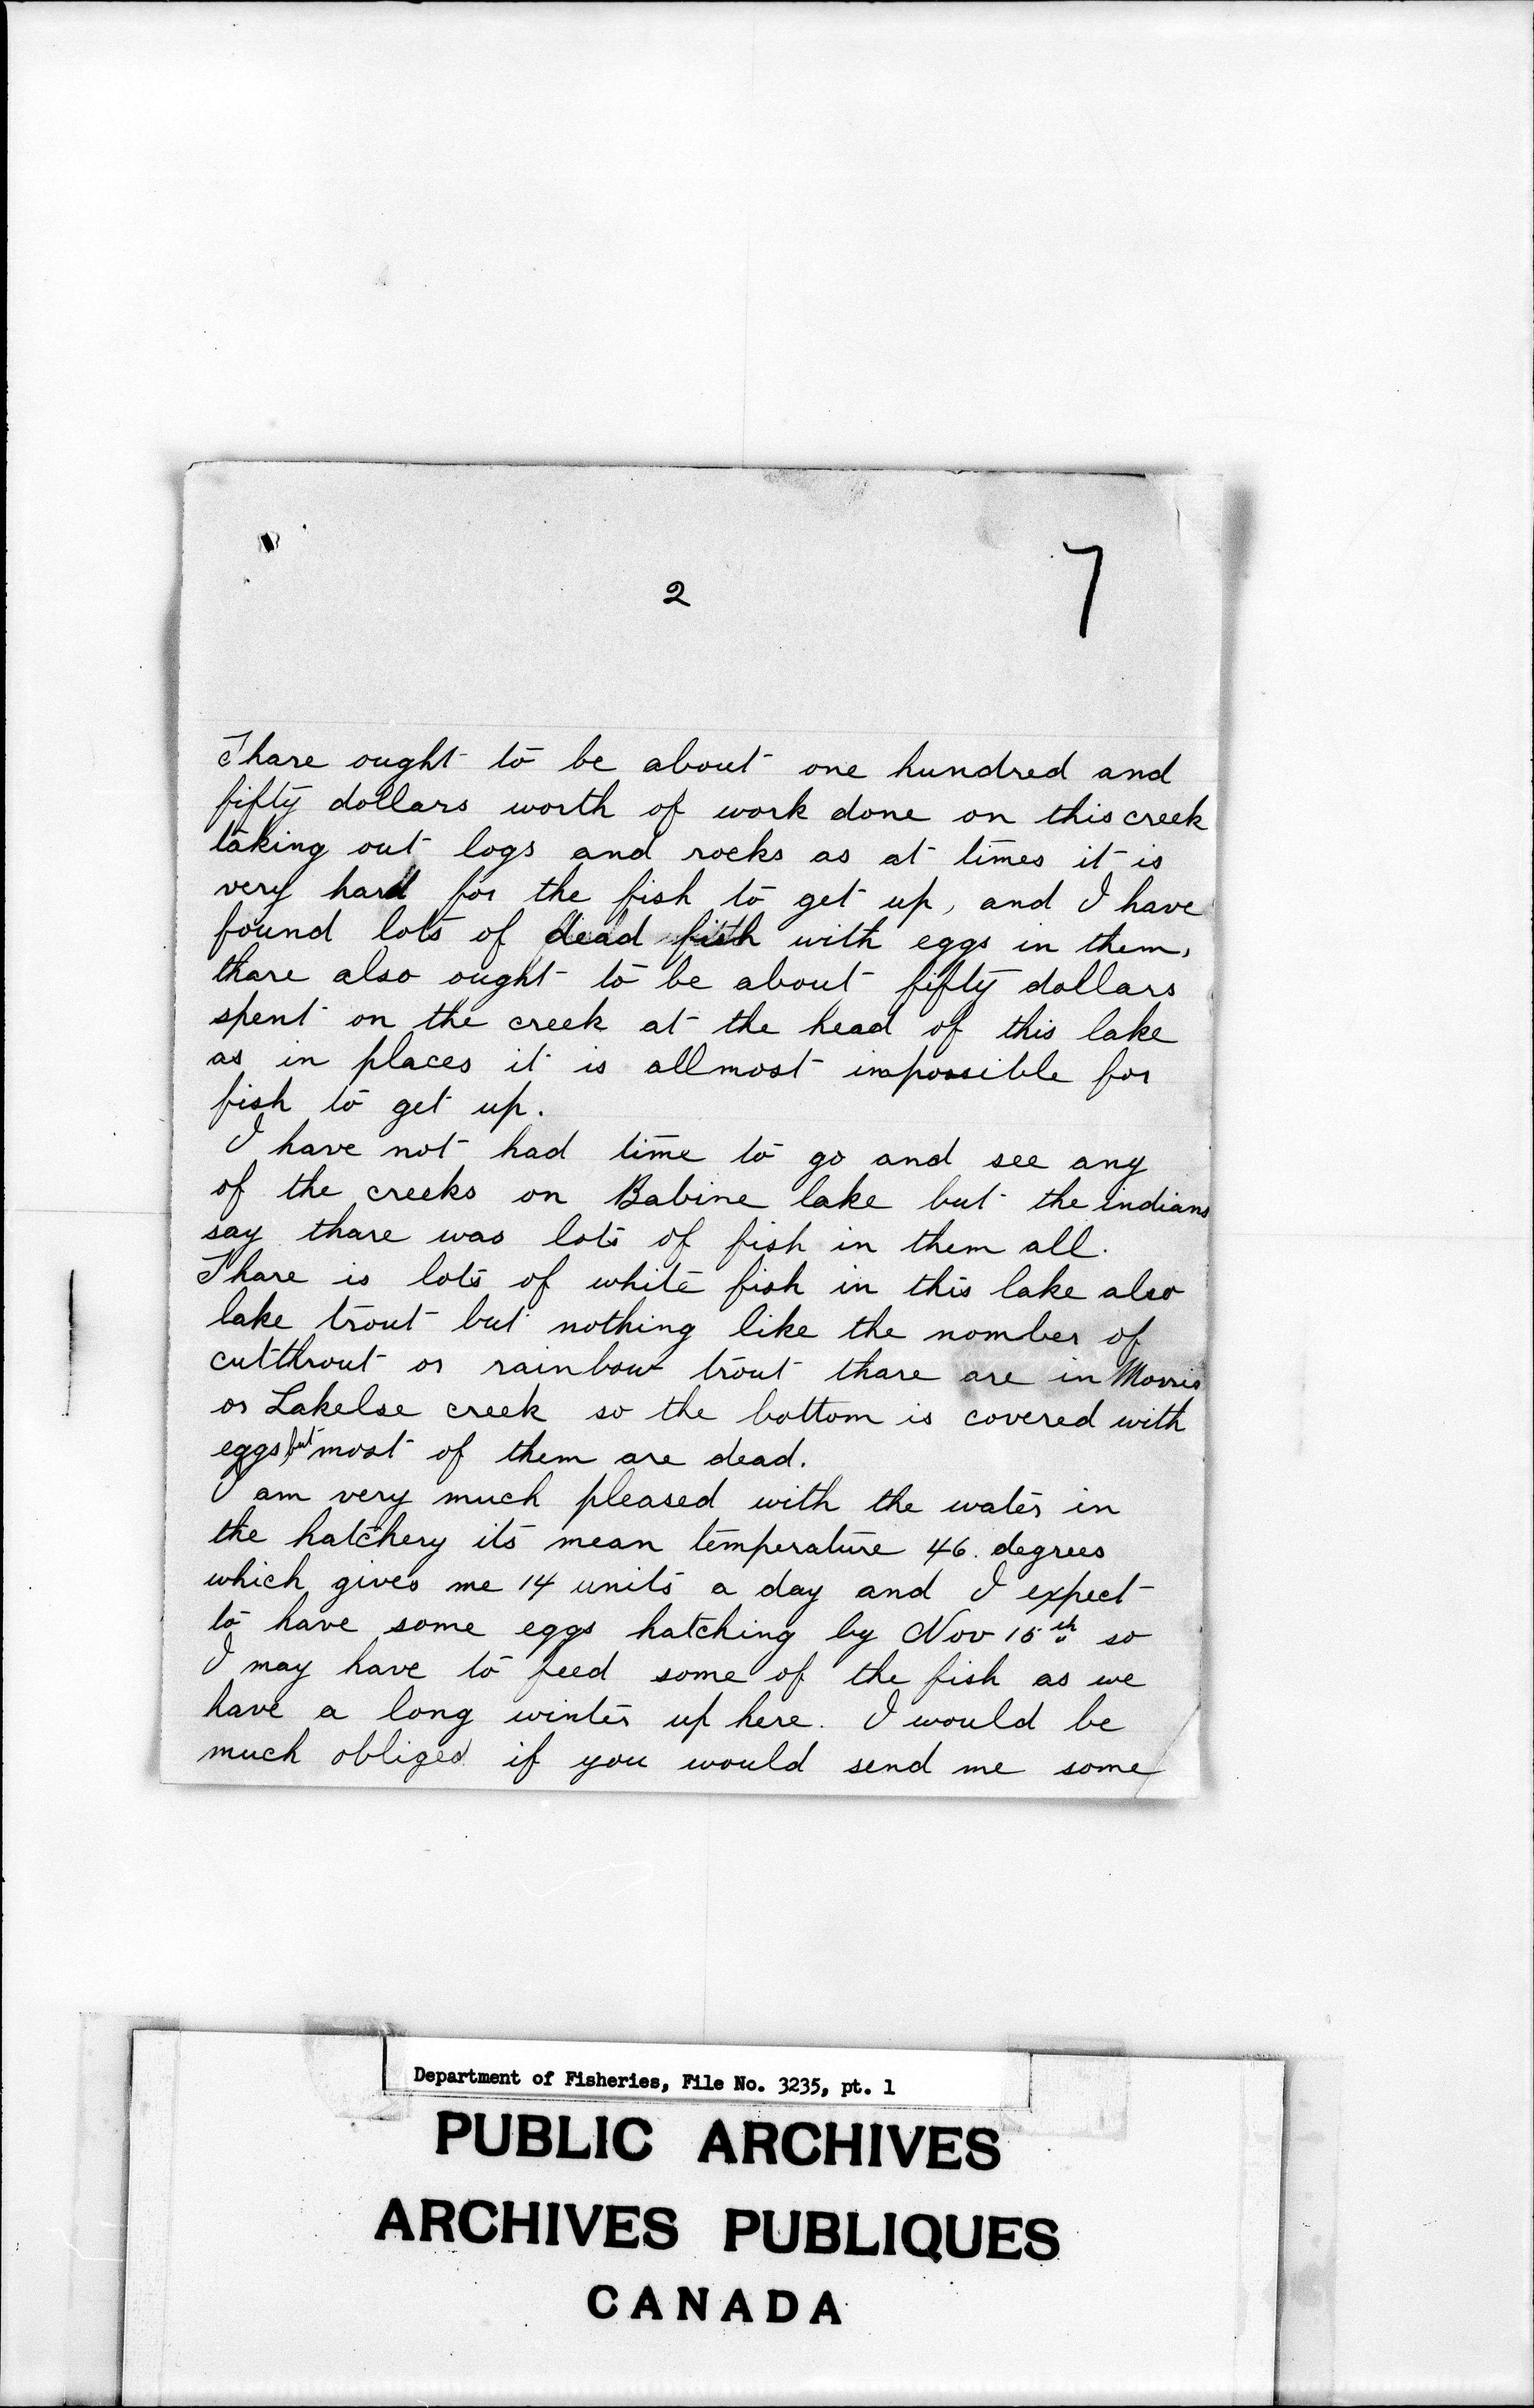 2
7
Thare ought to be about one hundred and
fifty dollars worth of work done on this creek
taking out logs and rocks as at times it is
very hard for the fish to get up, and I have
found lots of dead fish with eggs in them,
thare also ought to be about fifty dollars
spent on the creek at the head of this lake
as in places it is allmost impossible for
fish to get up.
I have not had time to go and see any
of the creeks on Babine lake but the indians
say thare was lots of fish in them all.
Thare is lots of white fish in this lake also
lake trout but nothing like the nomber of
cutthrout or rainbow trout thare are in Morris
or Lakelse creek so the bottom is covered with
eggs but most of them are dead.
I am very much pleased with the water in
the hatchery its mean temperature 46. degrees
which gives me 14 units a day and I expect
to have some eggs hatching by Nov 15th so
I may have to feed some of the fish as we
have a long winter up here. I would be
much obliged if you would send me some
Department of Fisheries, File No. 3235, pt. 1
PUBLIC ARCHIVES
ARCHIVES PUBLIQUES
CANADA